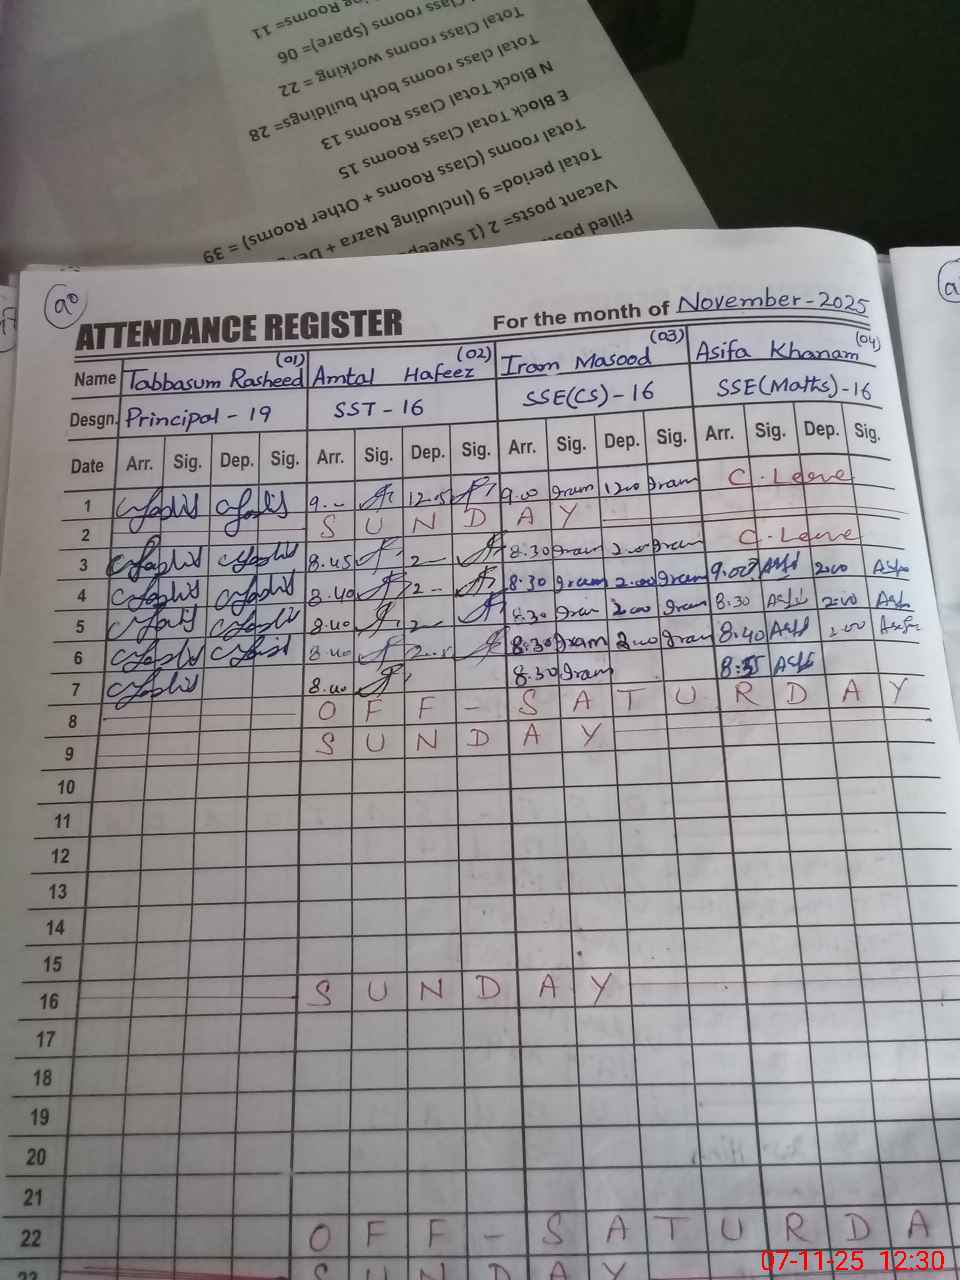 ng Rooms= 11
Class rooms (Spare)= 06
Total Class rooms working = 22
Total class rooms both buildings= 28
N Block Total Class Rooms 13
E Block Total Class Rooms 15
Total rooms (Class Rooms + Other Rooms) = 39
Total period= 9 (Including Nazra +
Vacant posts= 2 (1 Sweep
Filled pos
ATTENDANCE REGISTER For the month of November-2025
(01) (02) (03) (04)
Name Tabbasum Rasheed Amtal Hafeez Iram Masood Asifa Khanam
Desgn. Principal - 19 SST - 16 SSE(CS) - 16 SSE(Maths) - 16
Date Arr. Sig. Dep. Sig. Arr. Sig. Dep. Sig. Arr. Sig. Dep. Sig. Arr. Sig. Dep. Sig.
1 9.- 12.5 9.00 Iram 1200 Iram C. Leave
2 S U N D A Y
3 8.45 2- 8.30 Iram 2.00 Iram C. Leave
4 8.40 2- 8.30 Iram 2.00 Iram 9.00 2.00
5 8.40 2- 8.30 Iram 2.00 Iram 8.30 2.00
6 8.40 8.30 Iram 2.00 Iram 8.40 2.00
7 8.40 8.30 Iram 8:35
8 O F F - S A T U R D A Y
9 S U N D A Y
10
11
12
13
14
15
16 S U N D A Y
17
18
19
20
21
22 O F F - S A T U R D A
23 S U N D A Y
07-11-25 12:30